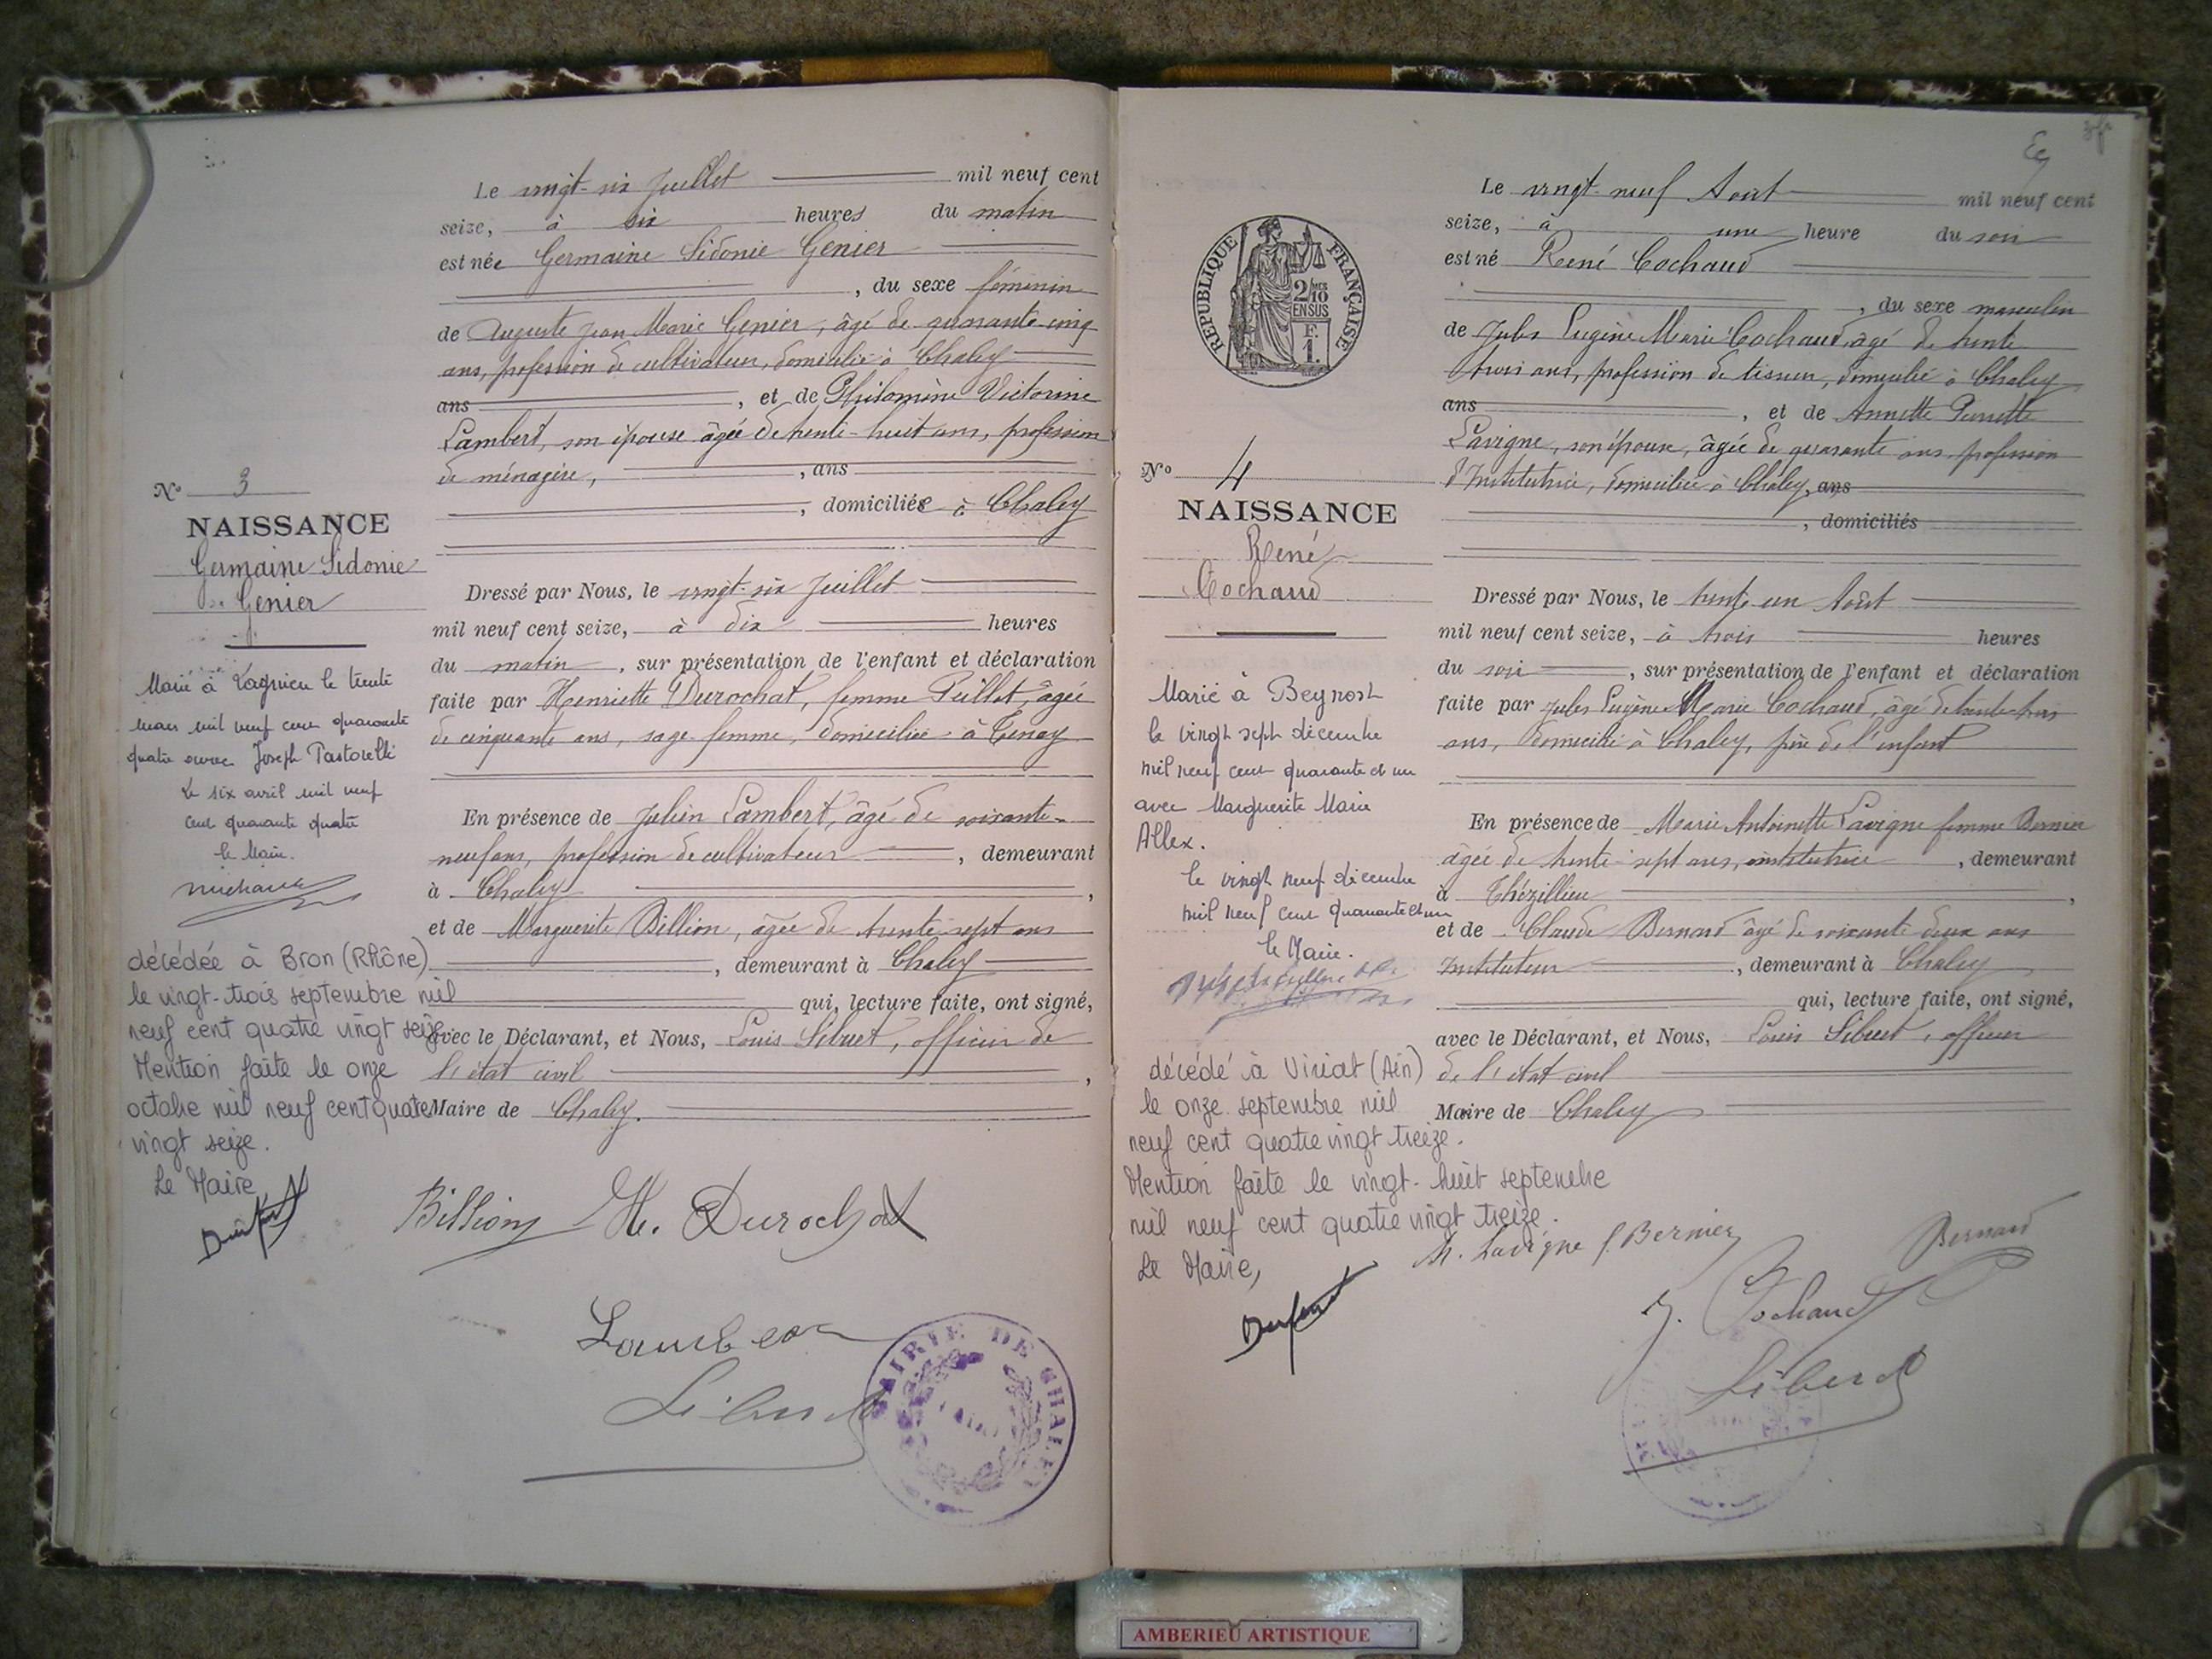 Le vingt-six Juillet mil neuf cent
seize, à six heures du matin
est née Germaine Sidonie Genier
, du sexe féminin
de Auguste Jean Marie Genier, âgé de quarante-cinq
ans, profession de cultivateur, domicilié à Chaley
ans , et de Philomène Victorine
Lambert, son épouse âgée de trente-huit ans, profession
de ménagère, , ans
, domiciliée à Chaley
N° 3
NAISSANCE
Germaine Sidonie
Genier
Dressé par Nous, le vingt-six Juillet
mil neuf cent seize, à dix heures
du matin, sur présentation de l'enfant et déclaration
faite par Henriette Durochat, femme Peillet, âgée
de cinquante ans, sage-femme, domiciliée à Tenay
En présence de Julien Lambert, âgé de soixante-
neuf ans, profession de cultivateur , demeurant
à Chaley ,
et de Marguerite Billion, âgée de trente-sept ans
, demeurant à Chaley
qui, lecture faite, ont signé,
avec le Déclarant, et Nous, Louis Sibuet, officier de
l'état civil ,
Maire de Chaley.
Marié à Lagnieu le trente
mars mil neuf cent quarante
quatre avec Joseph Pastorelli
Le six avril mil neuf
cent quarante quatre
le Maire.
décédée à Bron (Rhône)
le vingt-trois septembre mil
neuf cent quatre vingt seize
Mention faite le onze
octobre mil neuf cent quatre
vingt seize.
Le Maire
Billion H. Durochat
Lambert
Sibuet
MAIRIE DE CHALEY
Le vingt-neuf Août mil neuf cent
seize, à une heure du soir
est né René Cochaud
, du sexe masculin
de Jules Eugène Marie Cochaud, âgé de trente
trois ans, profession de tisseur, domicilié à Chaley
ans , et de Annette Perrette
Lavigne, son épouse, âgée de quarante ans, profession
d'Institutrice, domiciliée à Chaley, ans
, domiciliés
REPUBLIQUE FRANÇAISE
2/10 EN SUS
F.
1.
N° 4
NAISSANCE
René
Cochaud
Dressé par Nous, le trente-un Août
mil neuf cent seize, à trois heures
du soir , sur présentation de l'enfant et déclaration
faite par Jules Eugène Marie Cochaud, âgé de trente-trois
ans, domicilié à Chaley, père de l'enfant
En présence de Marie Antoinette Lavigne femme Bernier
âgée de trente-sept ans, institutrice , demeurant
à Thézillieu ,
et de Claude Bernard âgé de soixante deux ans
Instituteur , demeurant à Chaley
qui, lecture faite, ont signé,
avec le Déclarant, et Nous, Louis Sibuet, officier
de l'état civil
Maire de Chaley
Marié à Beynost
le vingt sept décembre
mil neuf cent quarante et un
avec Marguerite Marie
Allex.
le vingt neuf décembre
mil neuf cent quarante et un
le Maire.
décédé à Viriat (Ain)
le onze septembre mil
neuf cent quatre vingt treize.
Mention faite le vingt-huit septembre
mil neuf cent quatre vingt treize.
Le Maire,
M. Lavigne f. Bernier
Bernard
J. Cochaud
Sibuet
AMBERIEU ARTISTIQUE